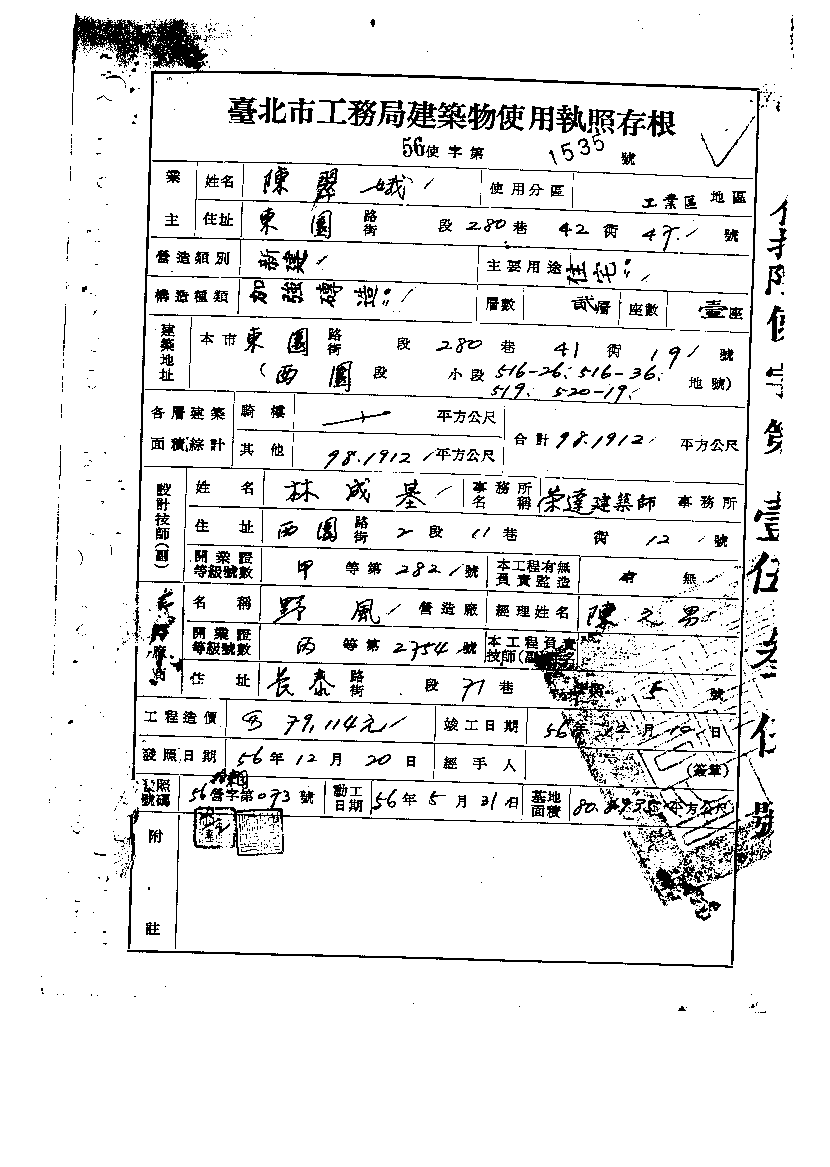 臺北市工務局建築物使用執照存根
56使字第 1535 號
業主 姓名 陳翠娥 使用分區 工業區 地區
住址 東園 路街 段 280 巷 42 衖 47 號
營造類別 新建 主要用途 住宅
構造種類 加強磚造 層數 貳層 座數 壹座
建築地址 本市 東園 路街 段 280 巷 41 衖 19 號
(西園 段 小段 516-26; 516-36; 519; 520-19 地號)
各層建築面積綜計 騎樓 平方公尺 合計 98.1912 平方公尺
其他 98.1912 平方公尺
設計技師(副) 姓名 林成基 事務所名稱 榮達建築師 事務所
住址 西園 路街 2 段 11 巷 衖 12 號
開業證等級號數 甲 等第 2821 號 本工程有無負責監造 有 無
名稱 野風 營造廠 經理姓名 陳元男
開業證等級號數 丙 等第 2754 號 本工程負責技師(副)
住址 長泰 路街 段 71 巷 5 號
工程造價 79,114元 竣工日期 56年12月10日
發照日期 56年12月20日 經手人 (簽章)
號碼 56營字第093號 動工日期 56年5月31日 基地面積 平方公尺
附註
使字第壹伍叁伍號